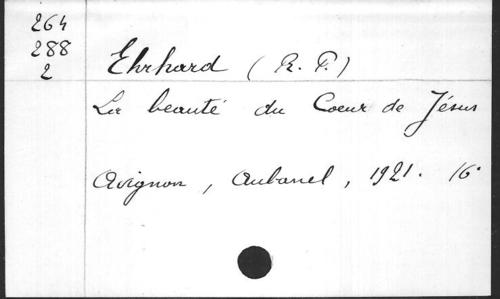 264
288
2
Ehrhard (R. P.)
La beauté du Coeur de Jésus
Avignon, Aubanel, 1921. 16°